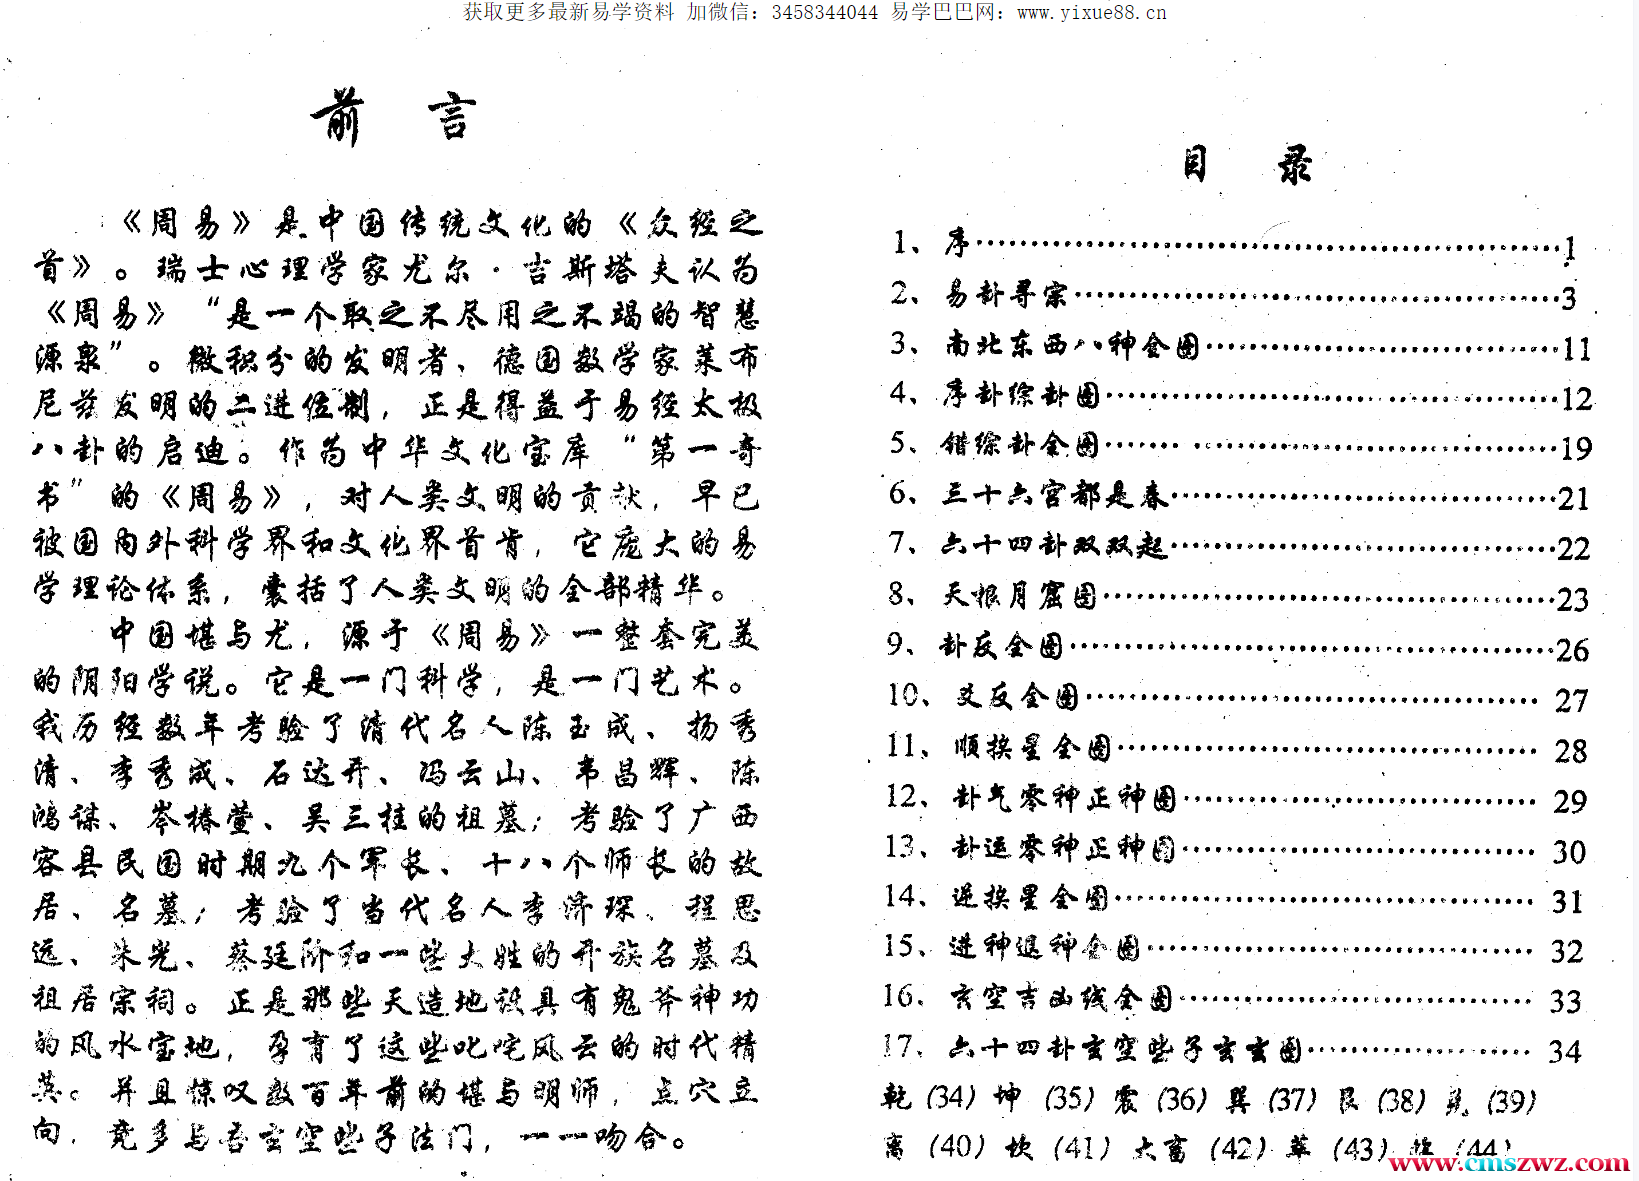 获取更多最新易学资料 加微信：3458344044 易学巴巴网：www.yixue88.cn
前 言
《周易》是中国传统文化的《众经之
首》。瑞士心理学家尤尔·吉斯塔夫认为
《周易》“是一个取之不尽用之不竭的智慧
源泉”。微积分的发明者、德国数学家莱布
尼兹发明的二进位制，正是得益于易经太极
八卦的启迪。作为中华文化宝库“第一奇
书”的《周易》，对人类文明的贡献，早已
被国内外科学界和文化界首肯，它庞大的易
学理论体系，囊括了人类文明的全部精华。
中国堪与尤，源于《周易》一整套完美
的阴阳学说。它是一门科学，是一门艺术。
我历经数年考验了清代名人陈玉成、扬秀
清、李秀成、石达开、冯云山、韦昌辉、陈
鸿谋、岑椿萱、吴三桂的祖墓；考验了广西
容县民国时期九个军长、十八个师长的故
居、名墓；考验了当代名人李济琛、程思
远、朱光、蔡廷阶和一些大姓的开族名墓及
祖居宗祠。正是那些天造地设具有鬼斧神功
的风水宝地，孕育了这些叱咤风云的时代精
英。并且惊叹数百年前的堪与明师，点穴立
向，竟多与吾玄空些子法门，一一吻合。
目 录
1、序……1
2、易卦寻宗……3
3、南北东西八神全图……11
4、序卦综卦图……12
5、错综卦全图……19
6、三十六宫都是春……21
7、六十四卦双双起……22
8、天根月窟图……23
9、卦反全图……26
10、爻反全图……27
11、顺挨星全图……28
12、卦气零神正神图……29
13、卦运零神正神图……30
14、逆挨星全图……31
15、进神退神全图……32
16、玄空吉凶线全图……33
17、六十四卦玄空些子玄玄图……34
乾（34）坤（35）震（36）巽（37）艮（38）兑（39）
离（40）坎（41）大畜（42）萃（43）（44）
www.cmszwz.com